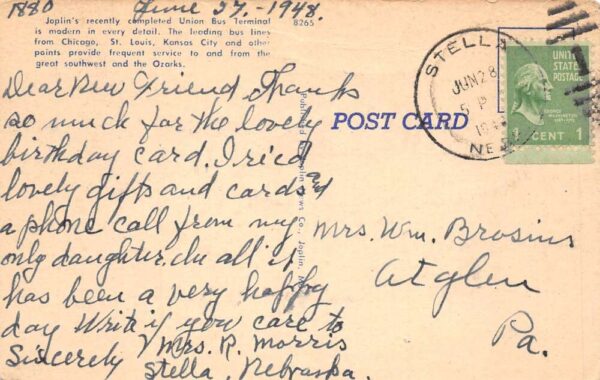 1880 June 27-1948.
Joplin's recently completed Union Bus Terminal
is modern in every detail. The leading bus lines
from Chicago, St. Louis, Kansas City and other
points provide frequent service to and from the
great southwest and the Ozarks.
8265
Dear New Friend Thanks
so much for the lovely
birthday card. I rec'd
lovely gifts and cards and
a phone call from my
only daughter. In all it
has been a very happy
day Write if you care to
Sincerely Mrs. R. Morris
Stella, Nebraska.
POST CARD
STELLA
JUN 28
P
NE
UNITED
STATES
POSTAGE
GEORGE
WASHINGTON
1 CENT 1
Mrs. Wm. Brosius
Atglen
Pa.